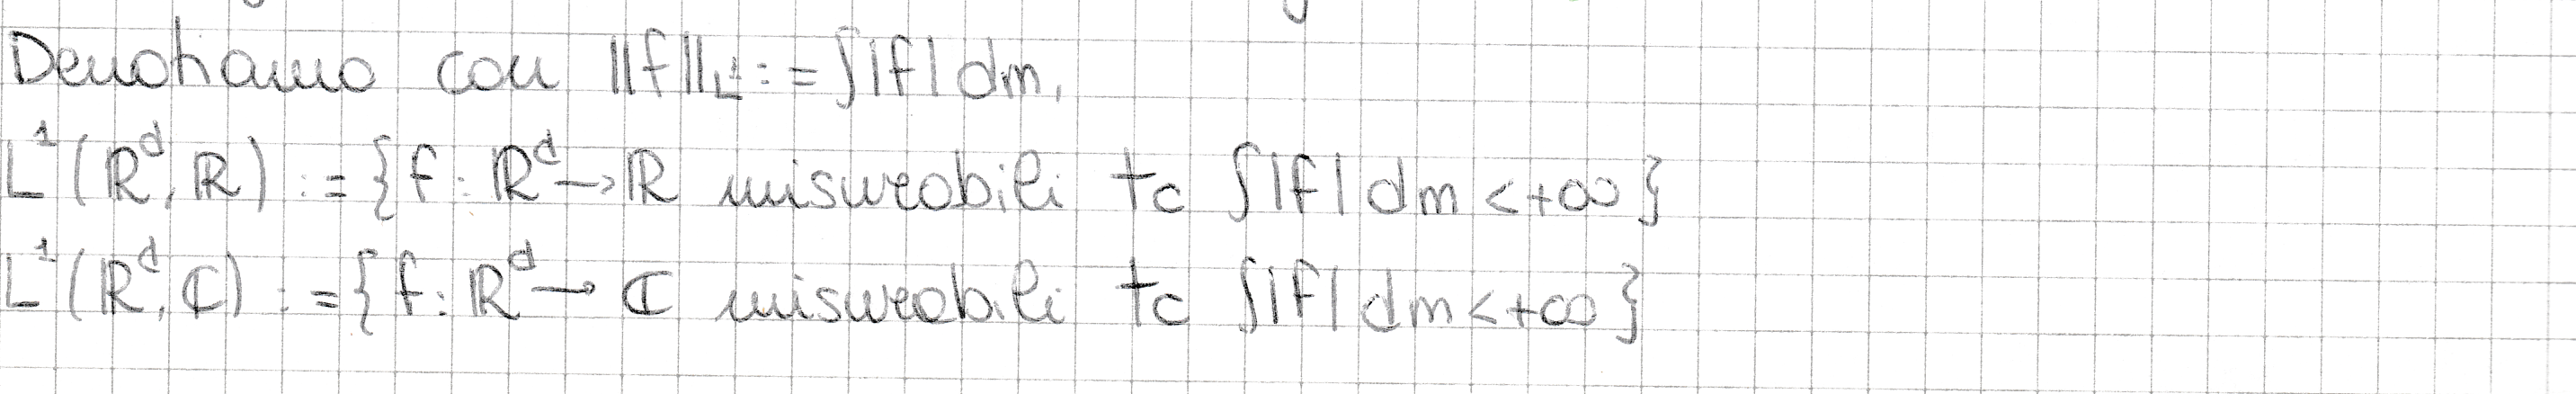 Denotiamo con ||f||_{L^1} := ∫|f| dm,
L^1(ℝ^d, ℝ) := {f : ℝ^d → ℝ misurabili tc ∫|f| dm < +∞}
L^1(ℝ^d, ℂ) := {f : ℝ^d → ℂ misurabili tc ∫|f| dm < +∞}